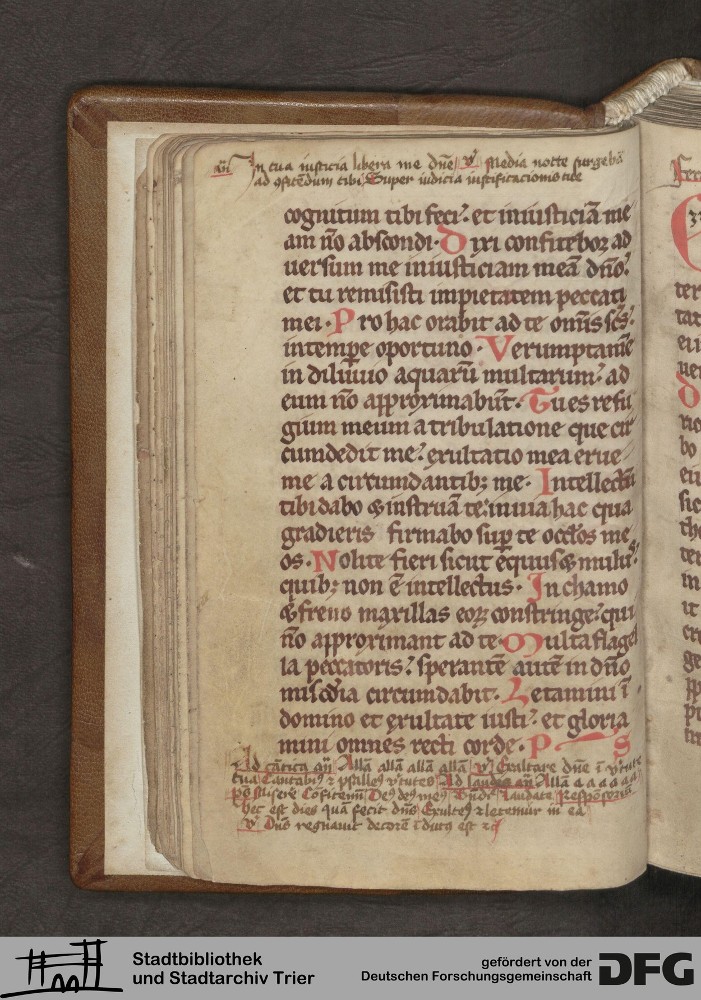 añ In tua iusticia libera me dñe ℣ Media nocte surgebã
ad ꝯfitẽdum tibi Super iudicia iustificacionis tue
cognitum tibi feci: et iniusticiã me
am ño abscondi· Dixi confitebor ad
uersum me iniusticiam meã dño:
et tu remisisti impietatem peccati
mei· Pro hac orabit ad te om̃is sc̃s:
in temp̱e oportuno· Verumptam̃e
in diluuio aquarũ multarum: ad
eum ño approximabũt· Tu es refu
gium meum a tribulatione que cir
cumdedit me: exultatio mea erue
me a circumdantibꝫ me· Intellectũ
tibi dabo & instruã te: in uia hac qua
gradieris firmabo suꝑ te oc̃los me
os· Nolite fieri sicut equus & mulus:
quibꝫ non ẽ intellectus· In chamo
& freno maxillas eoꝝ constringe: qui
ño approximant ad te· Multa flagel
la peccatoris: sperantẽ autẽ in dño
mis̃cdia circumdabit· Letamini ĩ
domino et exultate iusti: et gloria
mini omnes recti corde· P S
Ad cãtica añ Allã allã allã allã ℣ Exaltare dñe ĩ ỹtute
tua Cantabiꝰ & psalleꝰ ỹtutes Ad laudes añ Allã a a a a a
Deꝰ deꝰ meꝰ Laudate
hec est dies quã fecit dñs Exulteꝰ & letemur in ea
℣ Dñs regnauit decorẽ ĩdutꝰ est
Stadtbibliothek
und Stadtarchiv Trier
gefördert von der
Deutschen Forschungsgemeinschaft
DFG